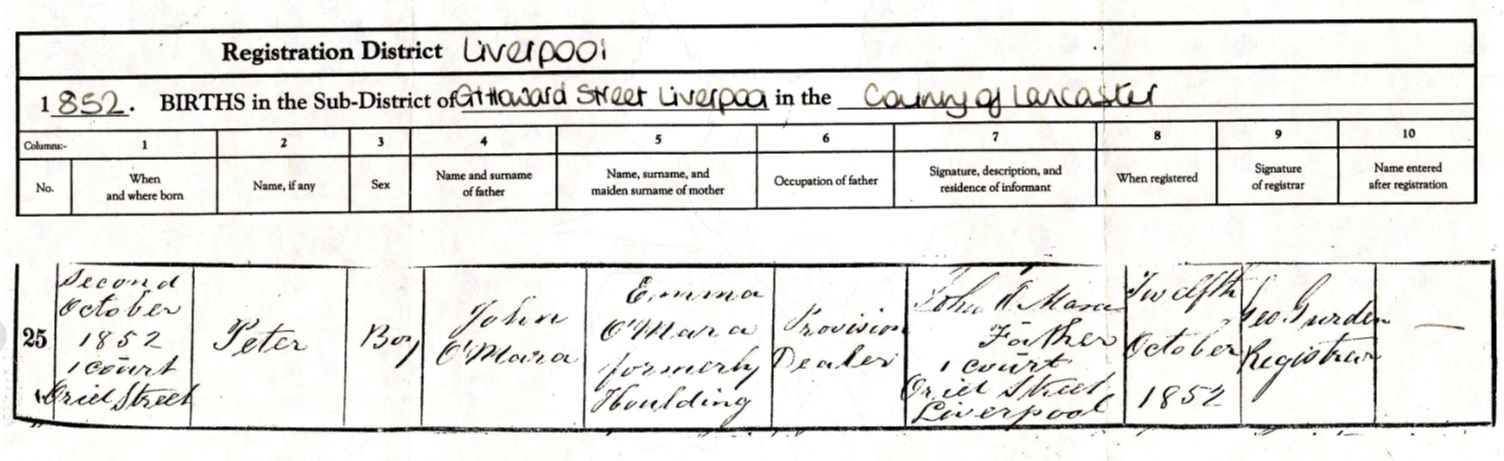 Registration District Liverpool
1852. BIRTHS in the Sub-District of Gt Howard Street Liverpool in the County of Lancaster
Columns:- 1 2 3 4 5 6 7 8 9 10
No.
When
and where born
Name, if any
Sex
Name and surname
of father
Name, surname, and
maiden surname of mother
Occupation of father
Signature, description, and
residence of informant
When registered
Signature
of registrar
Name entered
after registration
25
Second
October
1852
1 court
Oriel Street
Peter
Boy
John
O'Mara
Emma
O'Mara
formerly
Houlding
Provision
Dealer
John O'Mara
Father
1 court
Oriel Street
Liverpool
Twelfth
October
1852
Geo Gurden
Registrar
—